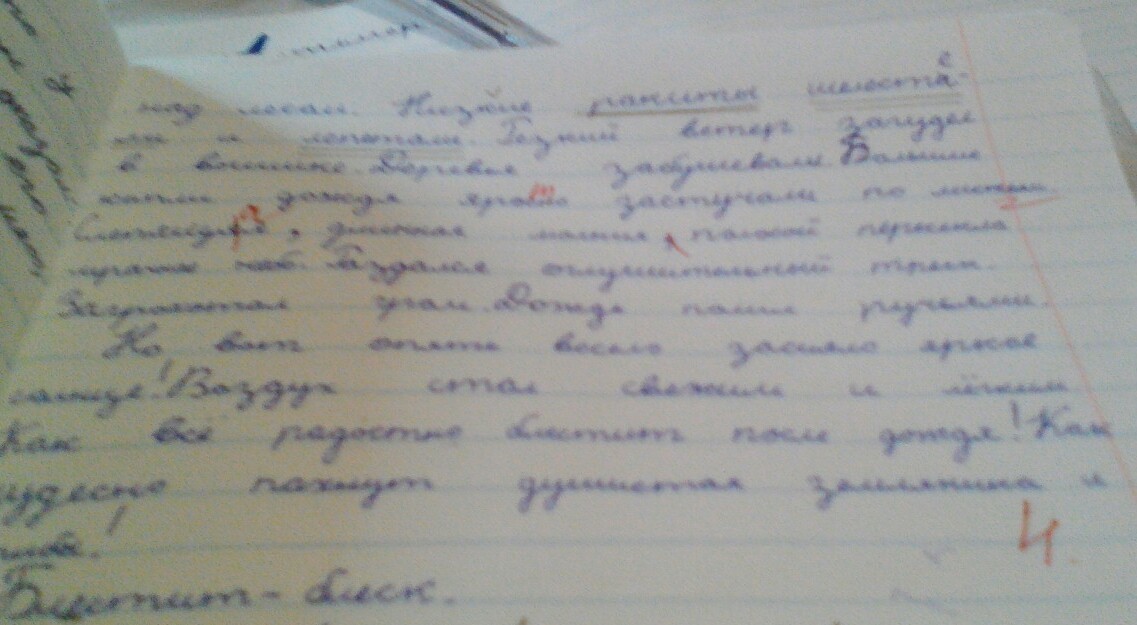 над лесом. Низкие ракиты шелеста-
ли и лепетали. Резкий ветер загудел
в вышине. Деревья забушевали. Большие
капли дождя застучали по листьям.
длинная молния полосой пересекла
мрачное небо. Раздался оглушительный треск.
Загрохотал гром. Дождь полил ручьями.
Но вот опять весело засияло яркое
солнце! Воздух стал свежим и лёгким
Как всё радостно блестит после дождя! Как
чудесно пахнут душистая земляника и
грибы!
Блестит - блеск.
4.